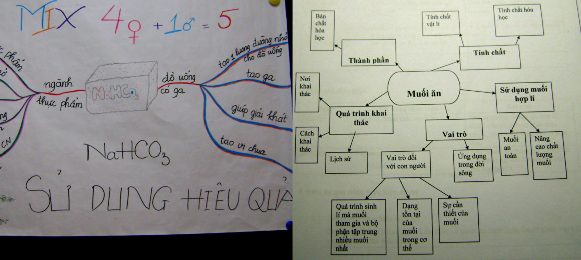 MIX 4♀ + 1♂ = 5
ngành
thực phẩm
NaHCO₃
đồ uống
có ga
tạo ga
giúp giải khát
tạo vị chua
CN
NaHCO₃
SỬ DỤNG HIỆU QUẢ
Bản
chất hóa
học
Thành phần
Tính chất
vật lí
Tính chất hóa
học
Tính chất
Muối ăn
Nơi
khai
thác
Quá trình khai
thác
Cách
khai
thác
Lịch sử
Sử dụng muối
hợp lí
Muối
an
toàn
Nâng
cao chất
lượng
muối
Vai trò
Vai trò đối
với con người
Ứng dụng
trong đời
sống
Quá trình sinh
lí mà muối
tham gia và bộ
phận tập trung
nhiều muối
nhất
Dạng
tồn tại
của
muối
trong cơ
thể
Sự cần
thiết của
muối